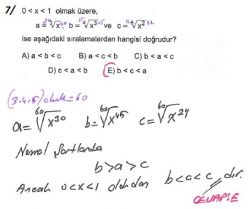 7/ 0 < x < 1 olmak üzere,
ise aşağıdaki sıralamalardan hangisi doğrudur?
A) a < b < c B) a < c < b C) b < a < c
D) c < a < b E) b < c < a
(3.4.5) okek = 60
a = ⁶⁰√x³⁰ b = ⁶⁰√x⁴⁵ c = ⁶⁰√x²⁴
Normal Şartlarda
b > a > c
Ancak 0 < x < 1 olduğundan b < a < c dir.
CEVAP: E